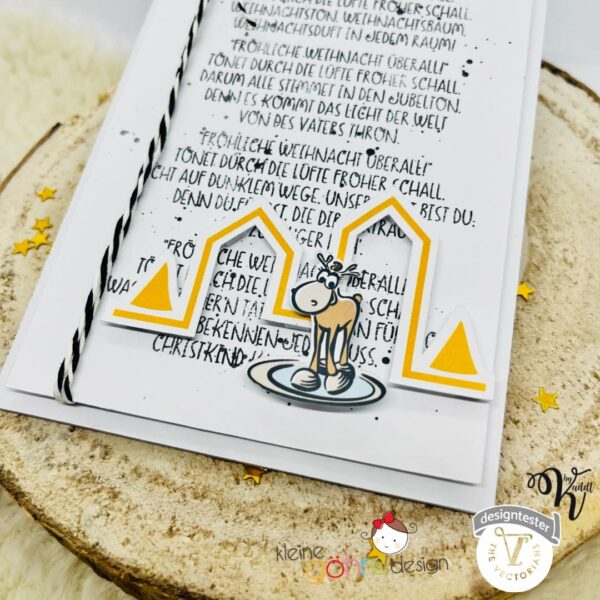 DURCH DIE LÜFTE FROHER SCHALL.
WEIHNACHTSTON, WEIHNACHTSBAUM,
WEIHNACHTSDUFT IN JEDEM RAUM!
"FRÖHLICHE WEIHNACHT ÜBERALL!"
TÖNET DURCH DIE LÜFTE FROHER SCHALL.
DARUM ALLE STIMMET IN DEN JUBELTON,
DENN ES KOMMT DAS LICHT DER WELT
VON DES VATERS THRON.
"FRÖHLICHE WEIHNACHT ÜBERALL!"
TÖNET DURCH DIE LÜFTE FROHER SCHALL.
CHT AUF DUNKLEM WEGE, UNSER BIST DU;
DENN DU DIE DI
"FRÖ HE WEI ÜBERALL!
TÖ CH DIE SCHA
WA
BEKENNEN JED
CHRISTKIND USS.
kleine
göhre design
by
Kaddl
designtester
THE VECTORIANS